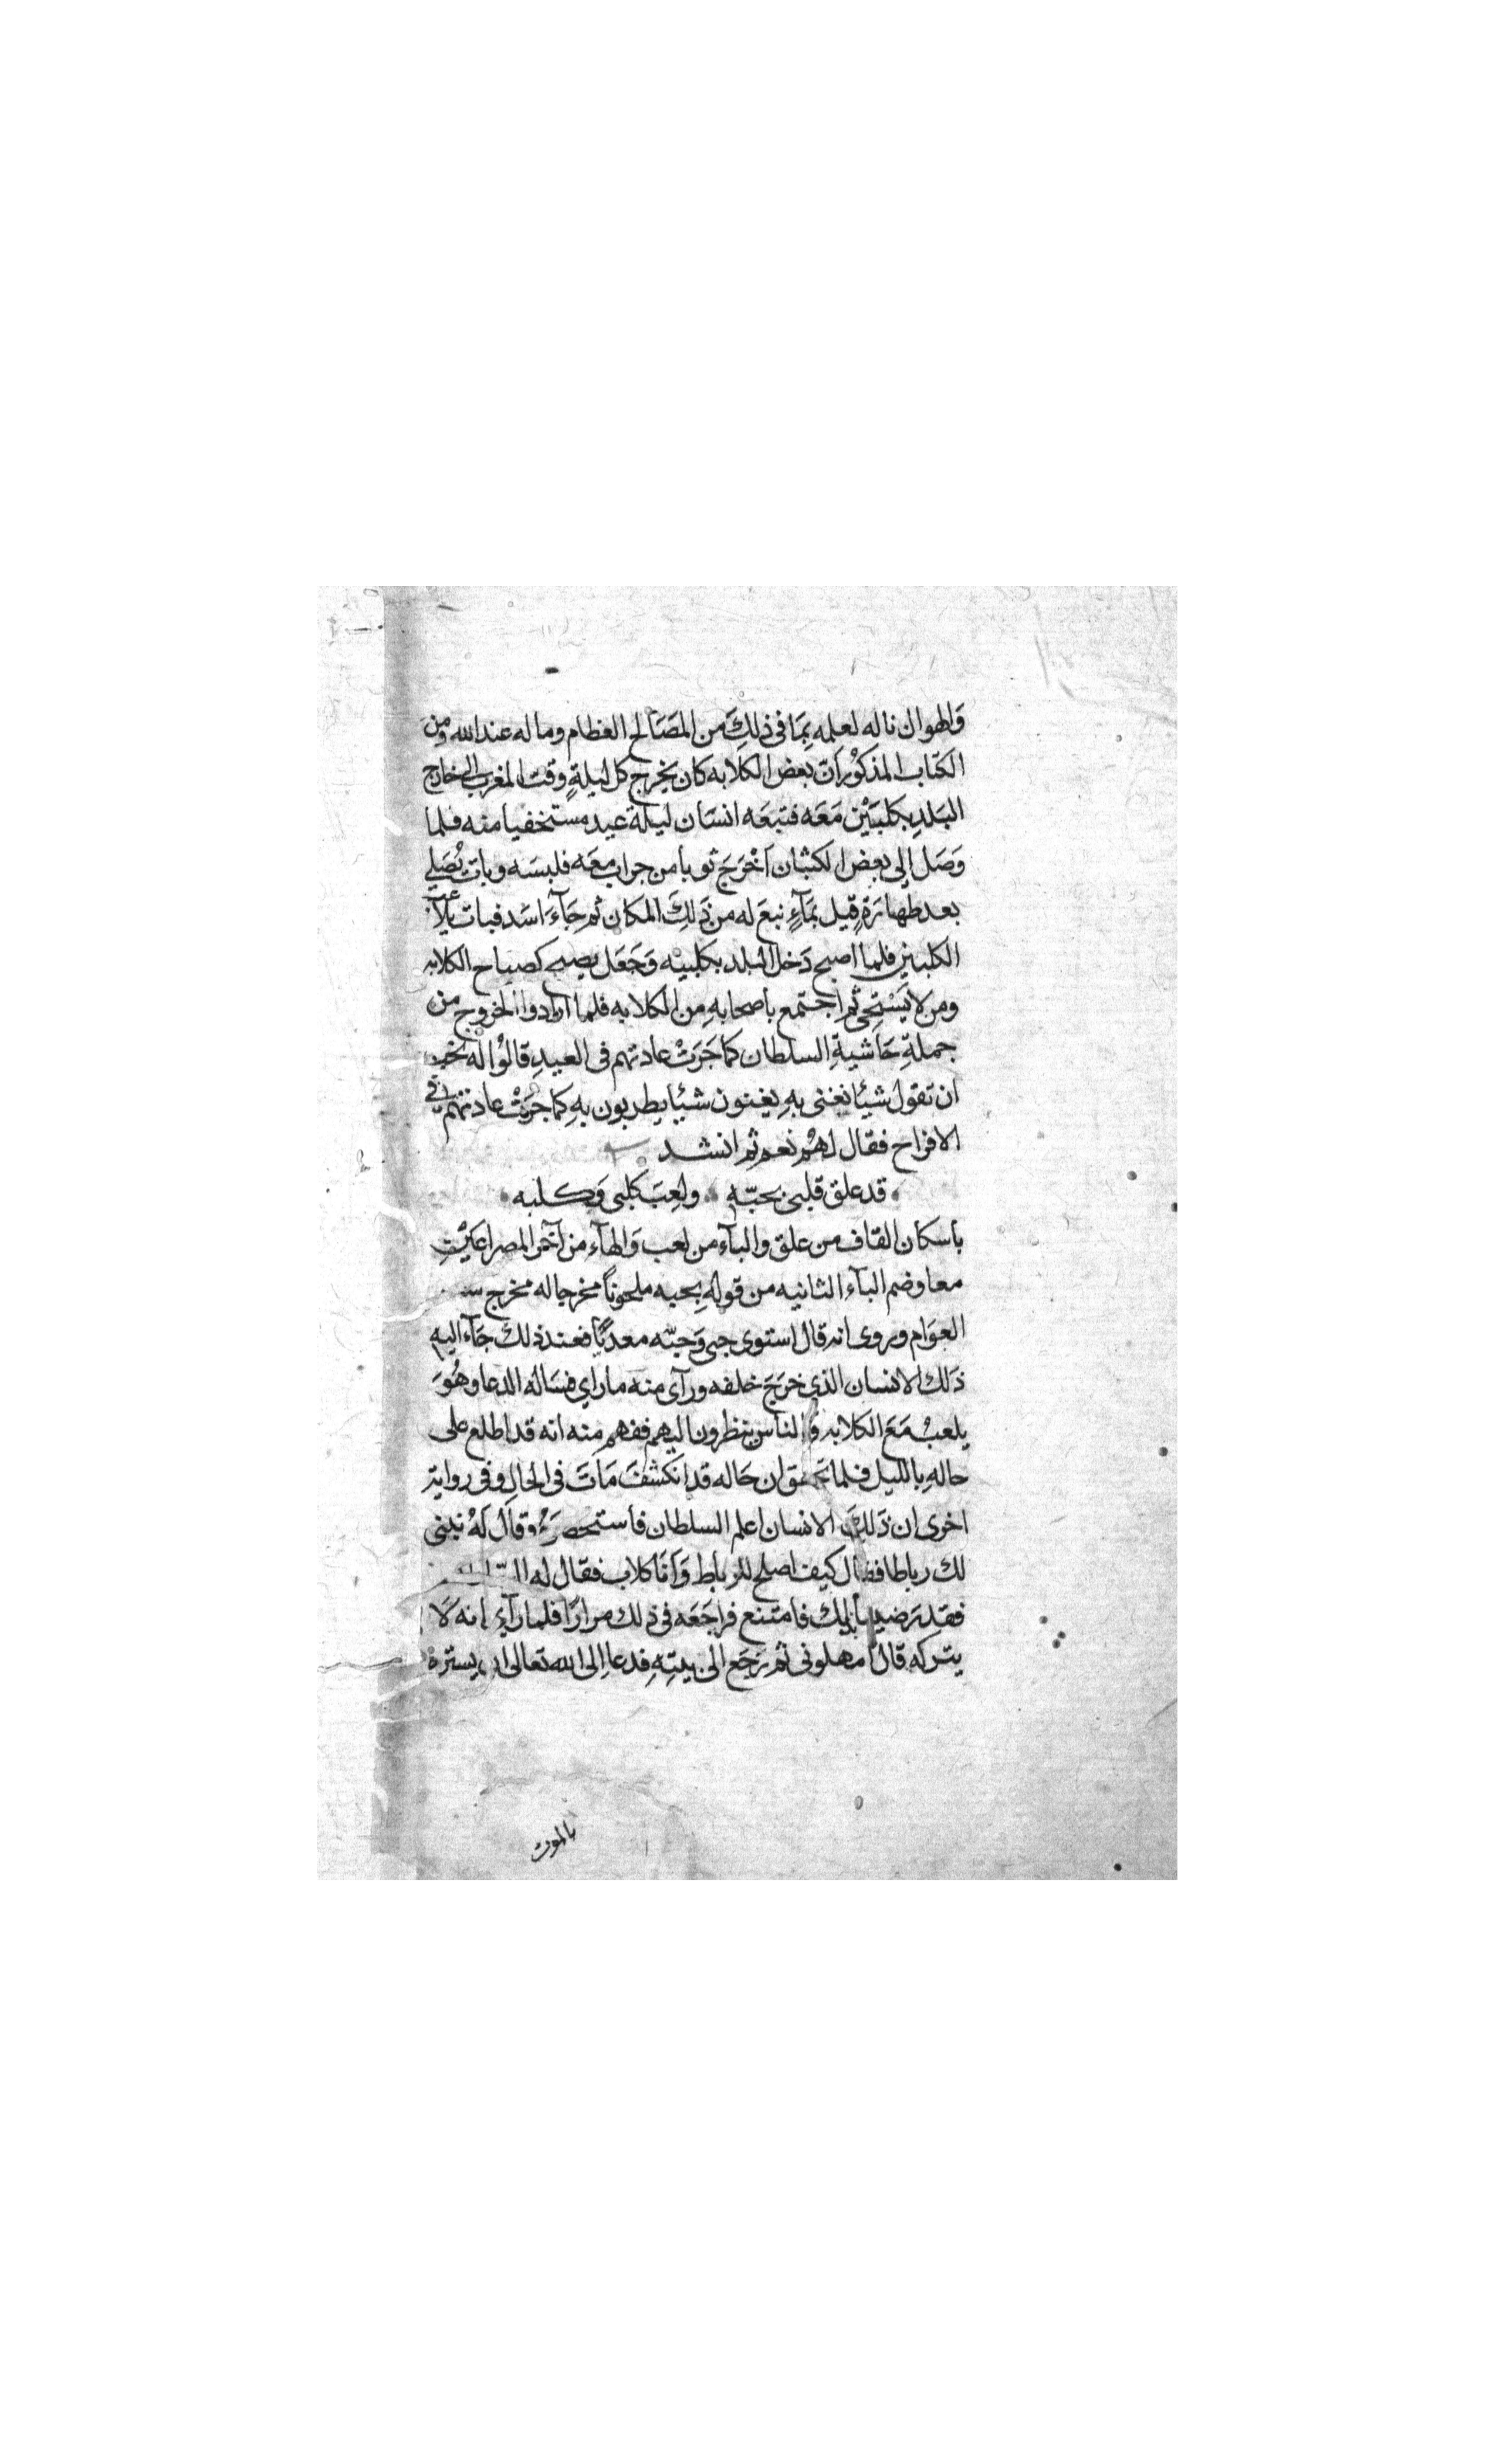 وَالهوان ناله لعلمه بِمَا في ذلِكَ من المصَالح العظام وما له عند الله ومِن
الكتاب المذكوْر اَنّ بعض الكلابه كان يخرج كل ليلةٍ وقت المغرب الى خارج
البَلدِ بكلبَيْن مَعَه فتبعَه انسَان ليلة عيد مستخفيا منه فلما
وَصَل إلى بعض الكثبان اَخْرَجَ ثوبا من جراب معَه فلبسَه وبات يُصَلي
بعد طهارَةٍ قيل بمَآءٍ نبعَ له من ذَلِكَ المكان ثم جَآءَ اسَد فبات يلاعب
الكلبين فلما اصبح دَخل البلد بكلبيْه وَجَعَل يصيح كصياح الكلابه
ومن لا يَسْتحى ثم اجتمع باصحابهِ من الكلابه فلما ارادوا الخروج من
جملةِ حَاشيةِ السلطان كما جَرَتْ عادتهم فى العيدِ قالوُا له نحب
ان تقول شيئا نغنى بهِ يغنون شيئا يطربون بهِ كما جَرَتْ عادتهم في
الافراح فقال لهمُ نعم ثم انشد
قد علق قلبى بحبّه ولعِبَ كلبى وَكلبه
باسكان القاف من علق والبآء من لعب وَالهآء من آخر المصراعَيْنِ
معا وضم البآء الثانيه من قولهِ بحبه ملحوناً مخرجا له مخرج
العوَام ويروى انه قال استوى حبى وَحبّه معدياً فعند ذلك جَآء اليه
ذَلك الانسان الذى خرَجَ خلفه ورآى منه ما راي فسَاله الدعا وهُوَ
يلعبُ مَعَ الكلابه وَالناس ينظرون اليهم ففهم منه انه قد اطلع على
حالهِ بالليل فلما تحقق ان حَاله قد انكشفَ مَاتَ فى الحالِ وفى رواية
اخرى ان ذَلِكَ الانسان اعلم السلطان فاستحضرَهُ وقال لَهُ نبنى
لك رباطا فقال كيف اصلح للرباط وَاَنا كلاب فقال له
فقد رَضينا بذلِك فامتنع فراجَعَه فى ذلك مرارًا فلما رآى انه لاَ
يتركه قال امهلونى ثم رَجَع الى بيتِهِ فدعا إلى الله تعالى ان يسترهُ
بالموت